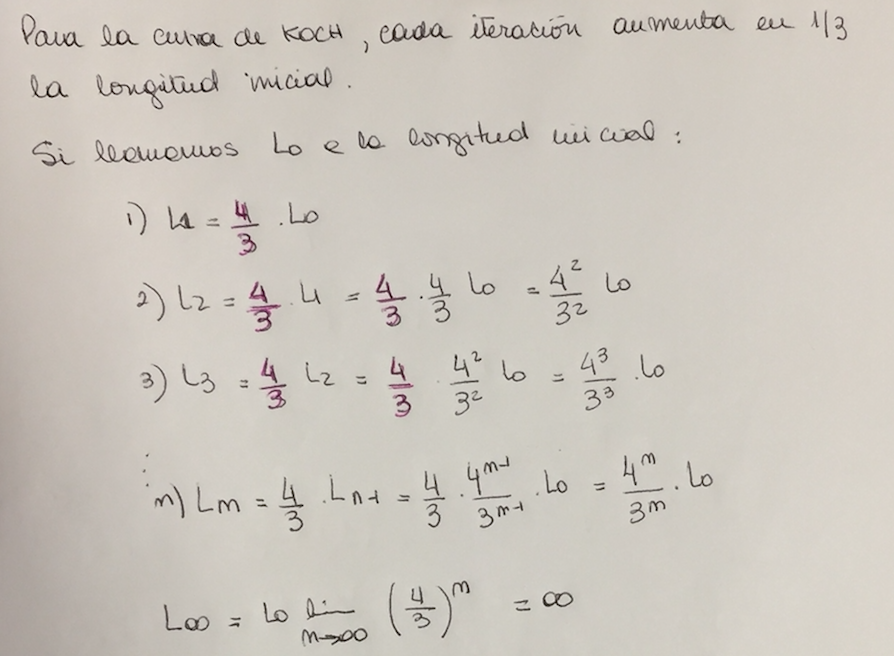 Para la curva de KOCH, cada iteración aumenta en 1/3
la longitud inicial.
Si llamamos L0 a la longitud inicial:
1) L1 = 4/3 . L0
2) L2 = 4/3 . L1 = 4/3 . 4/3 L0 = 4²/3² L0
3) L3 = 4/3 L2 = 4/3 . 4²/3² L0 = 4³/3³ . L0
⋮
n) Ln = 4/3 . Ln-1 = 4/3 . 4ⁿ⁻¹/3ⁿ⁻¹ . L0 = 4ⁿ/3ⁿ . L0
L∞ = L0 lim n→∞ (4/3)ⁿ = ∞